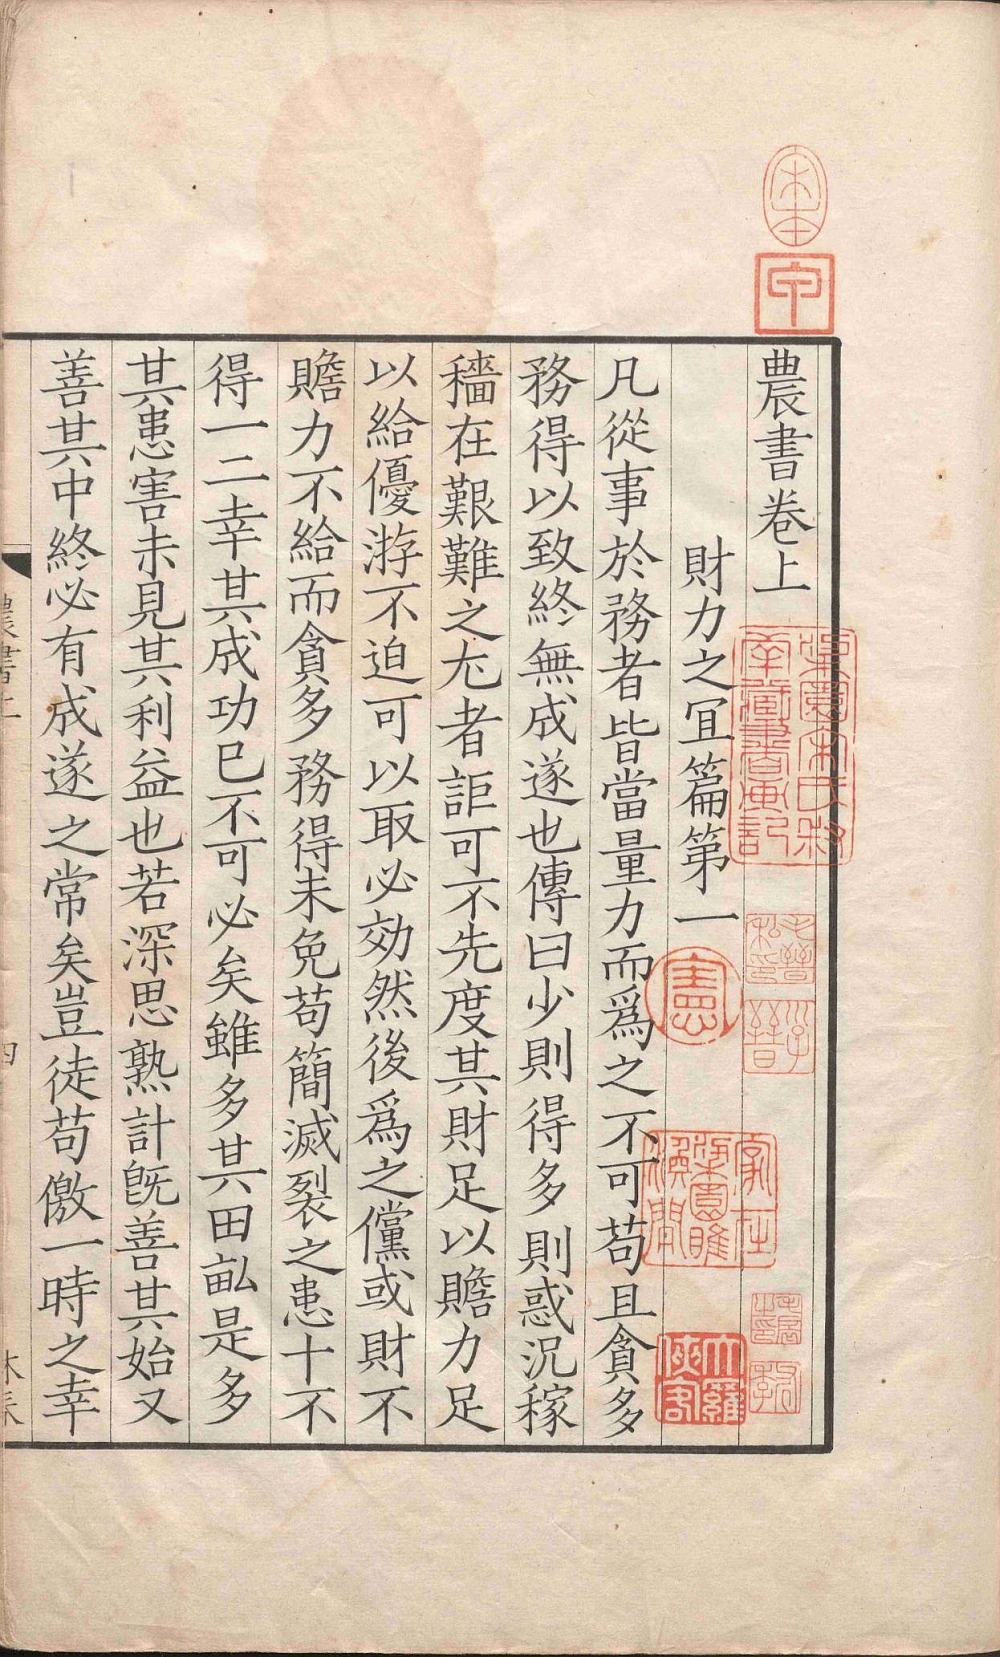 農書卷上
財力之宜篇第一
凡從事於務者皆當量力而爲之不可苟且貪多
務得以致終無成遂也傳曰少則得多則惑況稼
穡在艱難之尤者詎可不先度其財足以贍力足
以給優游不迫可以取必効然後爲之儻或財不
贍力不給而貪多務得未免苟簡滅裂之患十不
得一二幸其成功已不可必矣雖多其田畝是多
其患害未見其利益也若深思熟計旣善其始又
善其中終必有成遂之常矣豈徒苟徼一時之幸
農書上
四
宋本
甲
憲